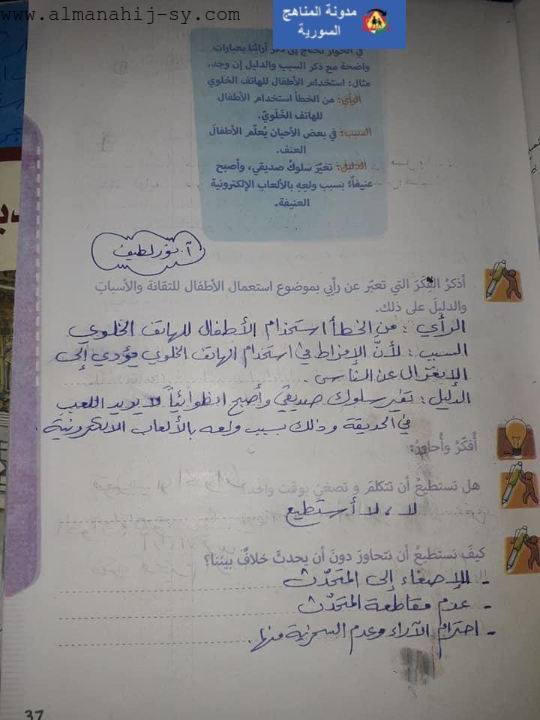 www.almanahij-sy.com
مدونة المناهج
السورية
في الحوار نحتاج إلى ذكر آرائنا بعبارات
واضحة مع ذكر السبب والدليل إن وجد.
مثال: استخدام الأطفال للهاتف الخلوي
الرأي: من الخطأ استخدام الأطفال
للهاتف الخَلَويّ.
السبب: في بعض الأحيان يُعلّم الأطفالَ
العنف.
الدليل: تغيّرَ سلوكُ صديقي، وأصبح
عنيفاً؛ بسبب ولعِهِ بالألعاب الإلكترونية
العنيفة.
آ. نور لطيف
أذكرُ الفِكَرَ التي تعبّر عن رأيي بموضوع استعمال الأطفال للتقانة والأسبابَ
والدليلَ على ذلك.
الرأي: من الخطأ استخدام الأطفال للهاتف الخلوي
السبب: لأنّ الإفراط في استخدام الهاتف الخلوي يؤدي إلى
الانعزال عن الناس.
الدليل: تغير سلوك صديقي وأصبح انطوائياً لا يريد اللعب
في الحديقة وذلك بسبب ولعه بالألعاب الالكترونية.
أفكّرُ وأُحاورُ:
هل تستطيعُ أن تتكلمَ و تصغيَ بوقت واحد؟
لا، لا أستطيع
كيفَ نستطيعُ أن نتحاورَ دونَ أن يحدثَ خلافٌ بيننا؟
- الإصغاء إلى المتحدّث
- عدم مقاطعة المتحدّث
- احترام الآراء وعدم السخرية منها.
37